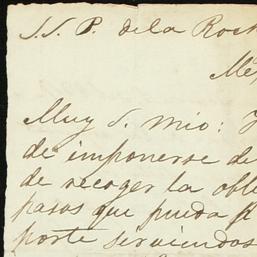 S. S. P. de la Ros
Me
Muy S. mio:
de imponerse de
de recoger la obli
pasos que pueda
porte sirviendos